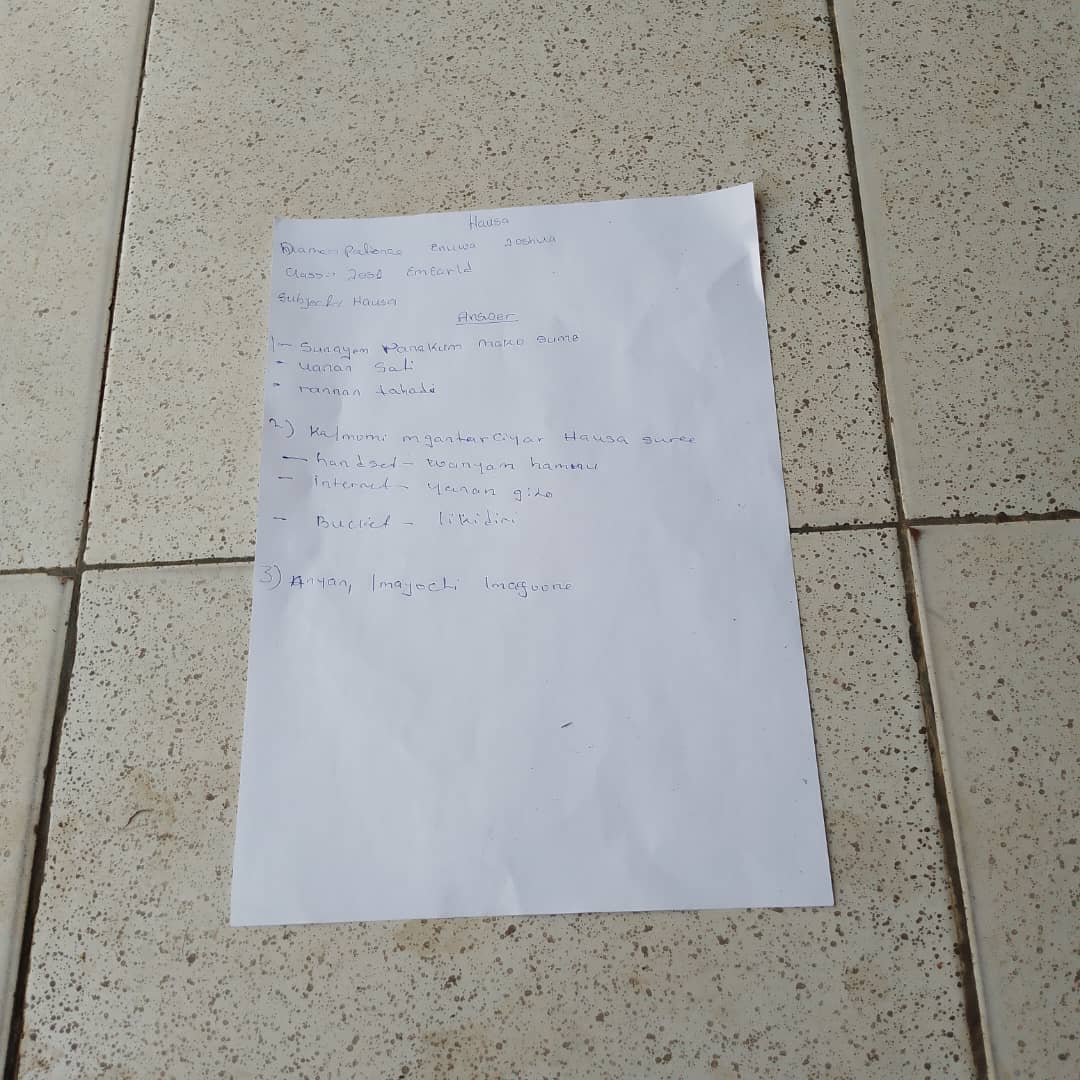 Hausa
Name:- Patience Enuwa Joshua
Class:- 2001 Emearld
Subject:- Hausa
Answer
1- Sunayen Ranakun mako sume
- Uanan Sati
- rannan tahadi
2) Kalmomi mgantarciyar Hausa suree
- handset - wanyam hannu
- Internet - yanan gizo
- Bucket - likidiri
3) Anyan, Imayochi Imaguone